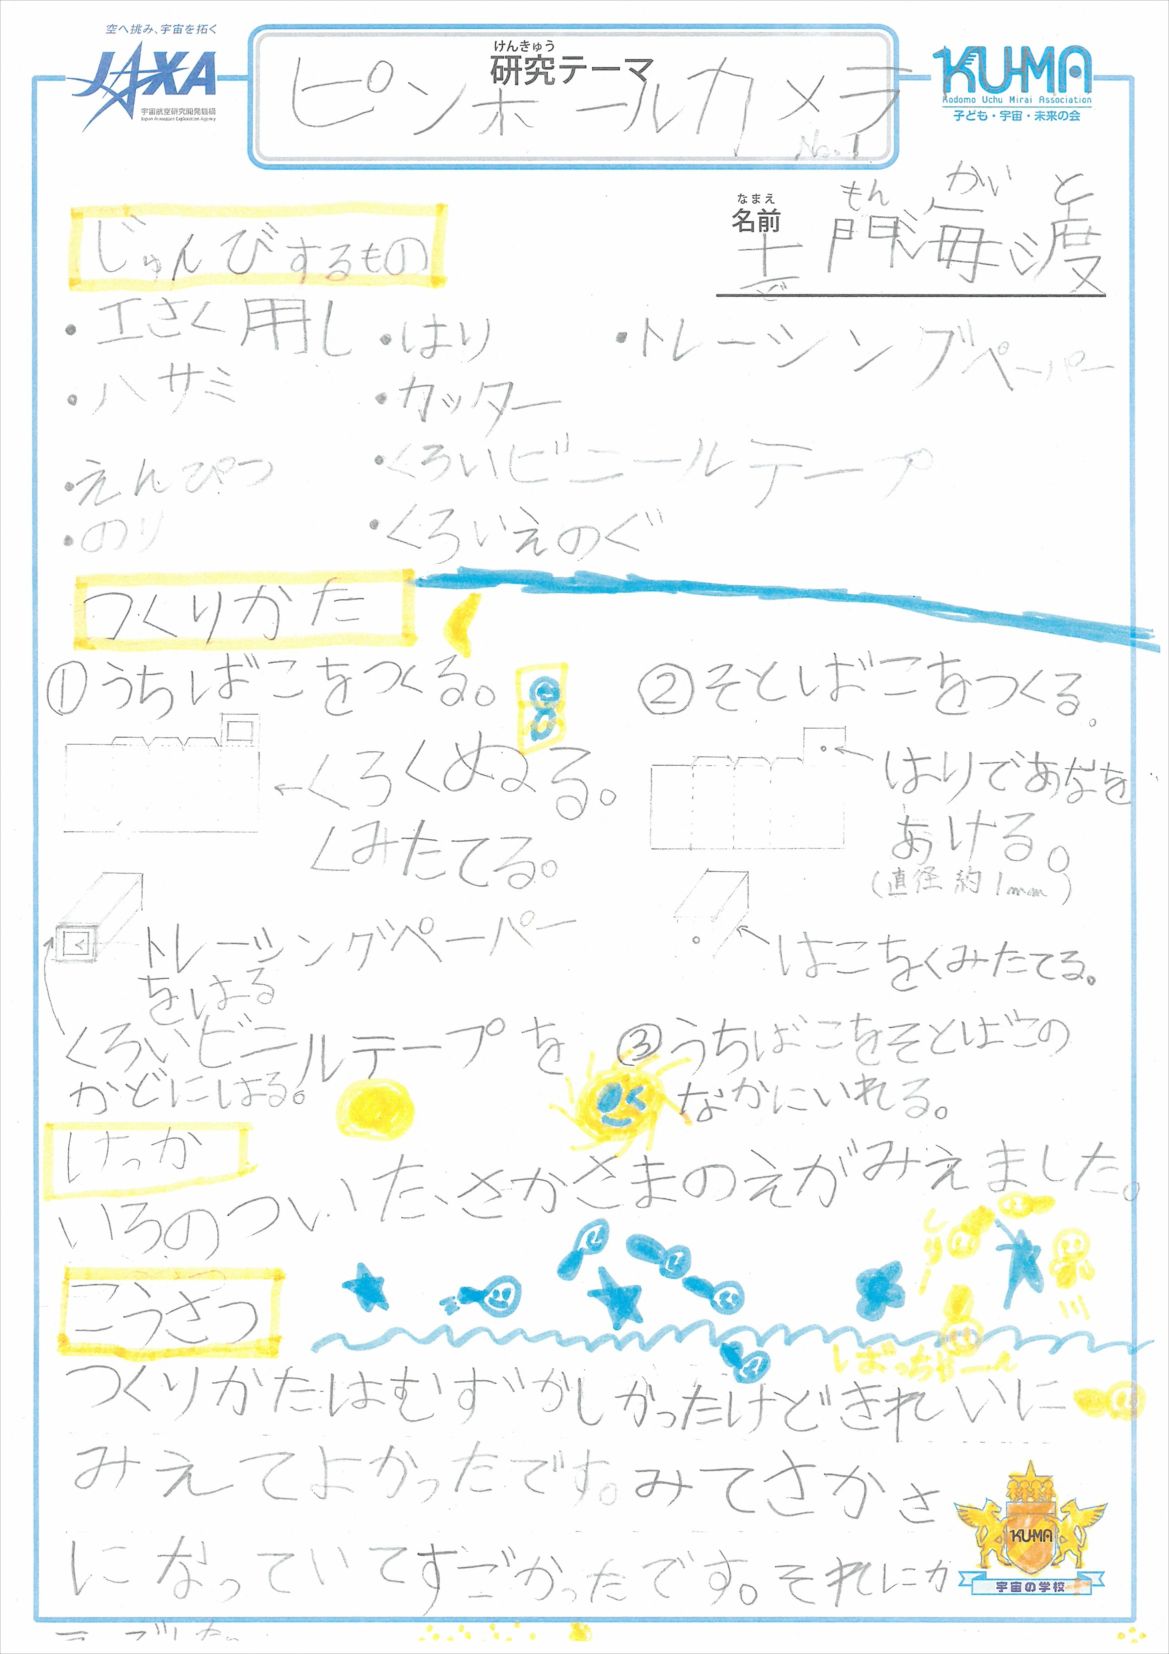 空へ挑み、宇宙を拓く
JAXA
宇宙航空研究開発機構
Japan Aerospace Exploration Agency
けんきゅう
研究テーマ
ピンホールカメラ
No.1
KU-MA
Kodomo Uchu Mirai Association
子ども・宇宙・未来の会
なまえ
名前
もん かい と
土門海渡
ど
じゅんびするもの
・工さく用し
・はり
・トレーシングペーパー
・ハサミ
・カッター
・えんぴつ
・くろいビニールテープ
・のり
・くろいえのぐ
つくりかた
①うちばこをつくる。
くろくぬる。
くみたてる。
トレーシングペーパー
をはる
くろいビニルテープを
かどにはる。
②そとばこをつくる。
はりであなを
あける。
(直径約1mm)
はこをくみたてる。
③うちばこをそとばこの
なかにいれる。
けっか
いろのついた、さかさまのえがみえました。
こうさつ
つくりかたはむずかしかったけどきれいに
みえてよかったです。みてさかさ
になっていてすごかったです。それにか
KU-MA
宇宙の学校